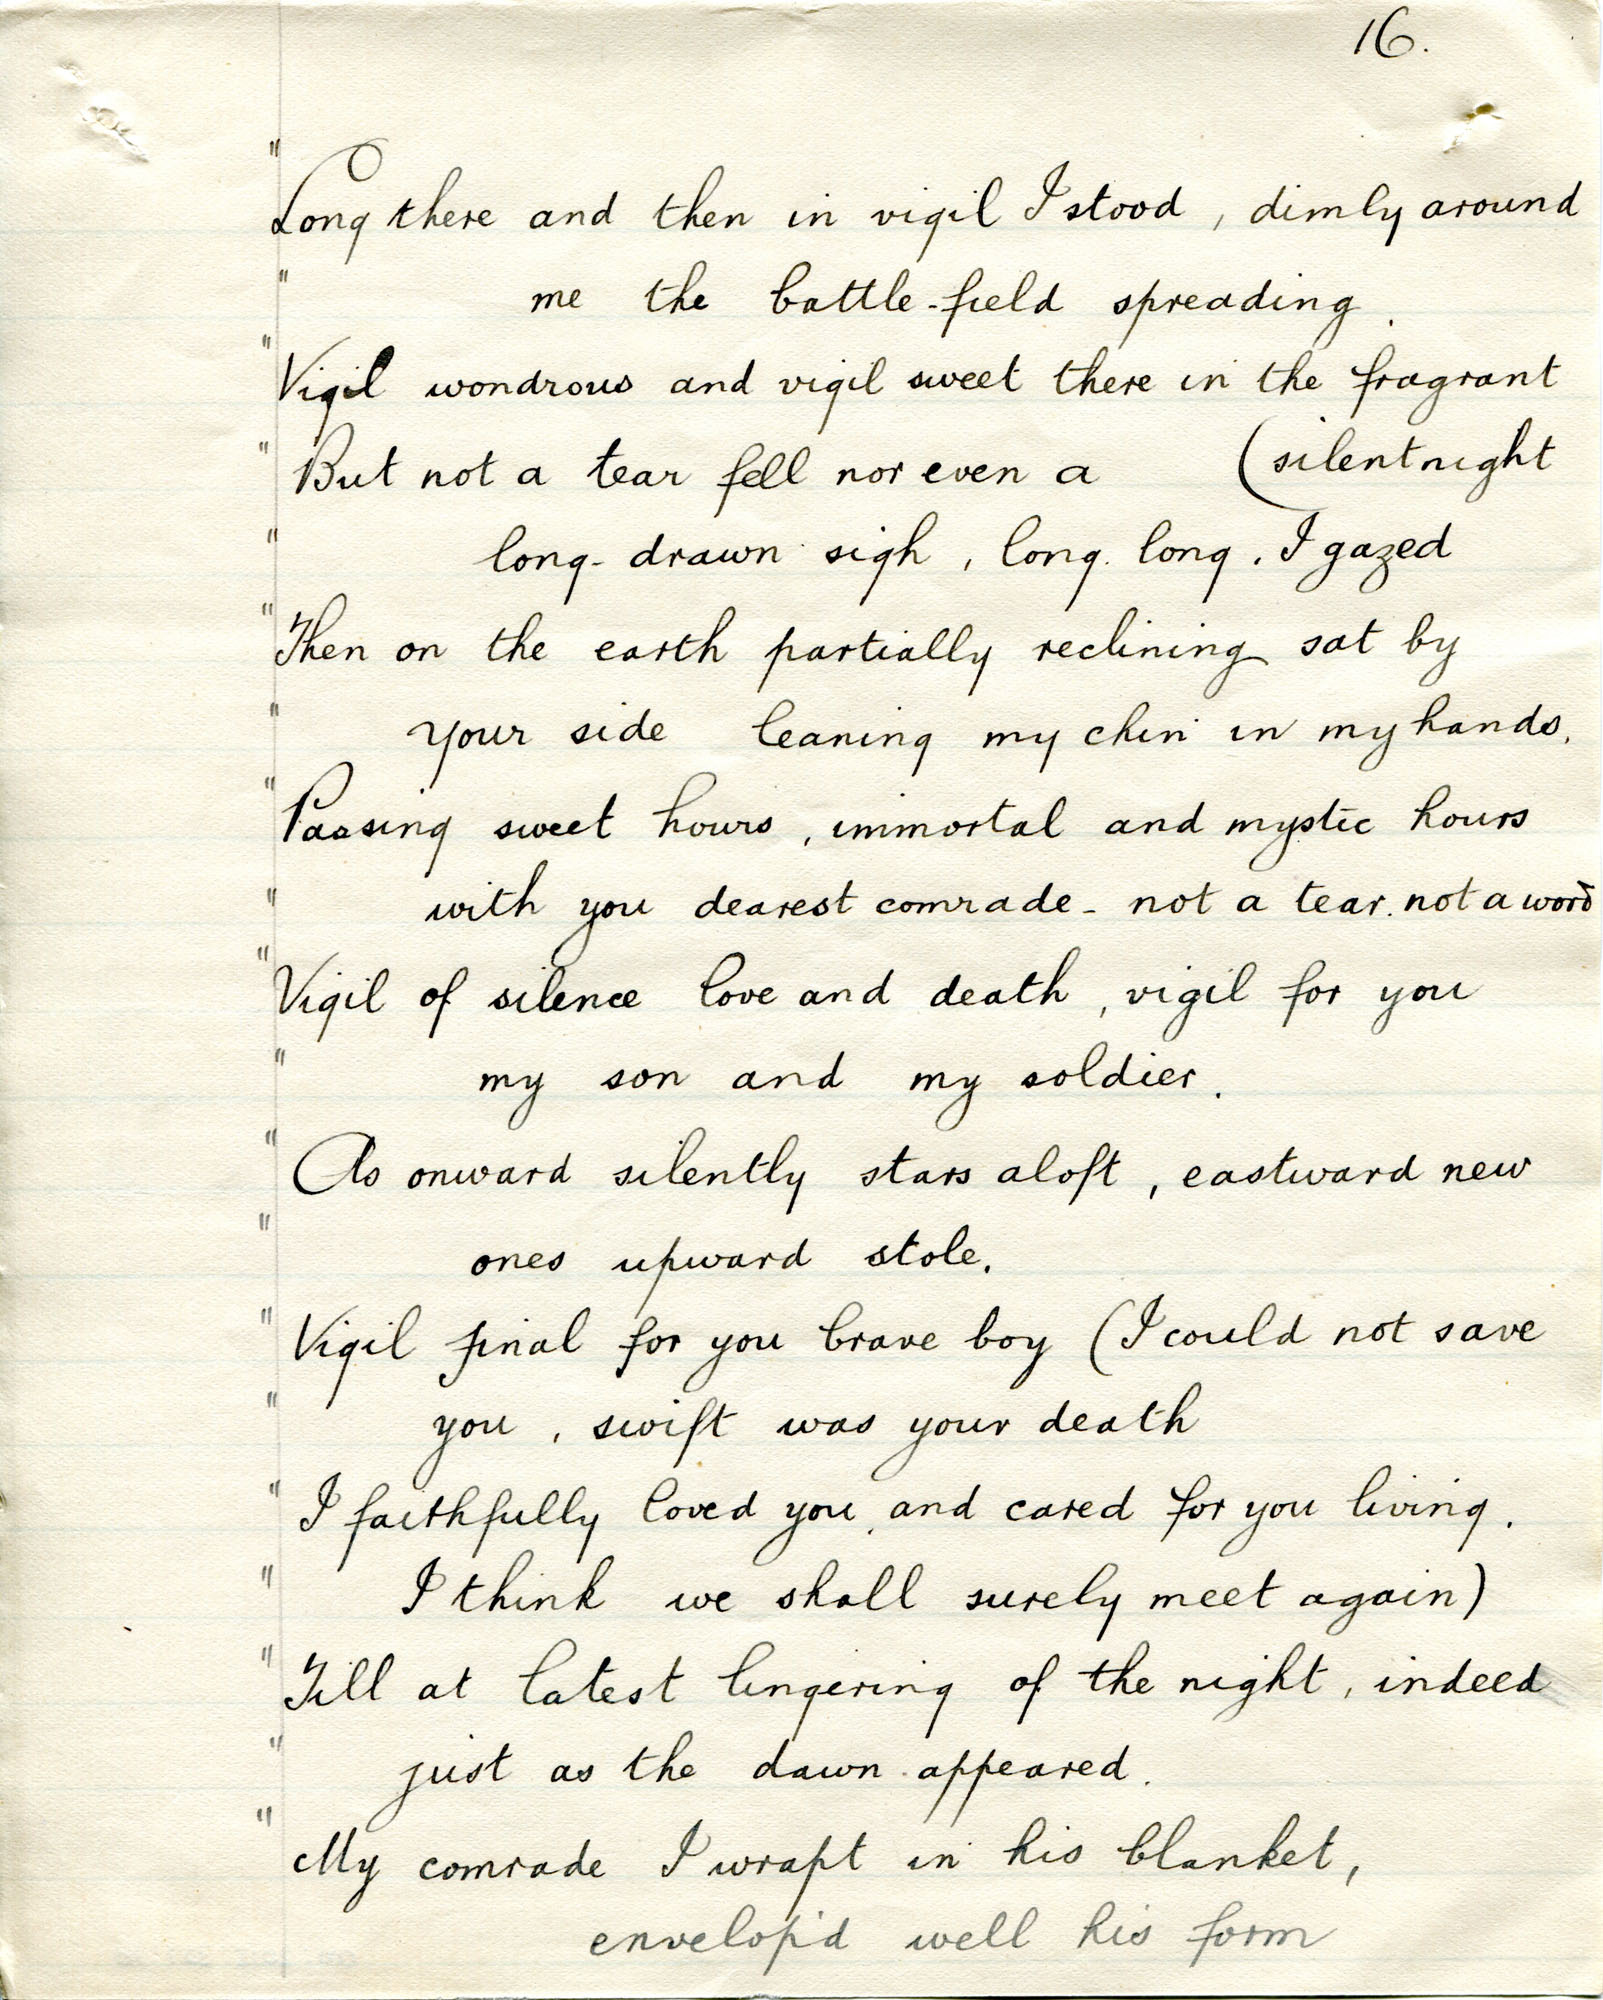 16.
" Long there and then in vigil I stood, dimly around
" me the battle-field spreading.
" Vigil wondrous and vigil sweet there in the fragrant
" But not a tear fell nor even a (silent night
" long-drawn sigh, long. long. I gazed
" Then on the earth partially reclining sat by
" your side leaning my chin in my hands.
" Passing sweet hours, immortal and mystic hours
" with you dearest comrade - not a tear. not a word
" Vigil of silence love and death, vigil for you
" my son and my soldier.
" As onward silently stars aloft, eastward new
" ones upward stole.
" Vigil final for you brave boy (I could not save
" you, swift was your death
" I faithfully loved you, and cared for you living.
" I think we shall surely meet again)
" Till at latest lingering of the night, indeed
" just as the dawn appeared.
" My comrade I wrapt in his blanket,
envelop'd well his form